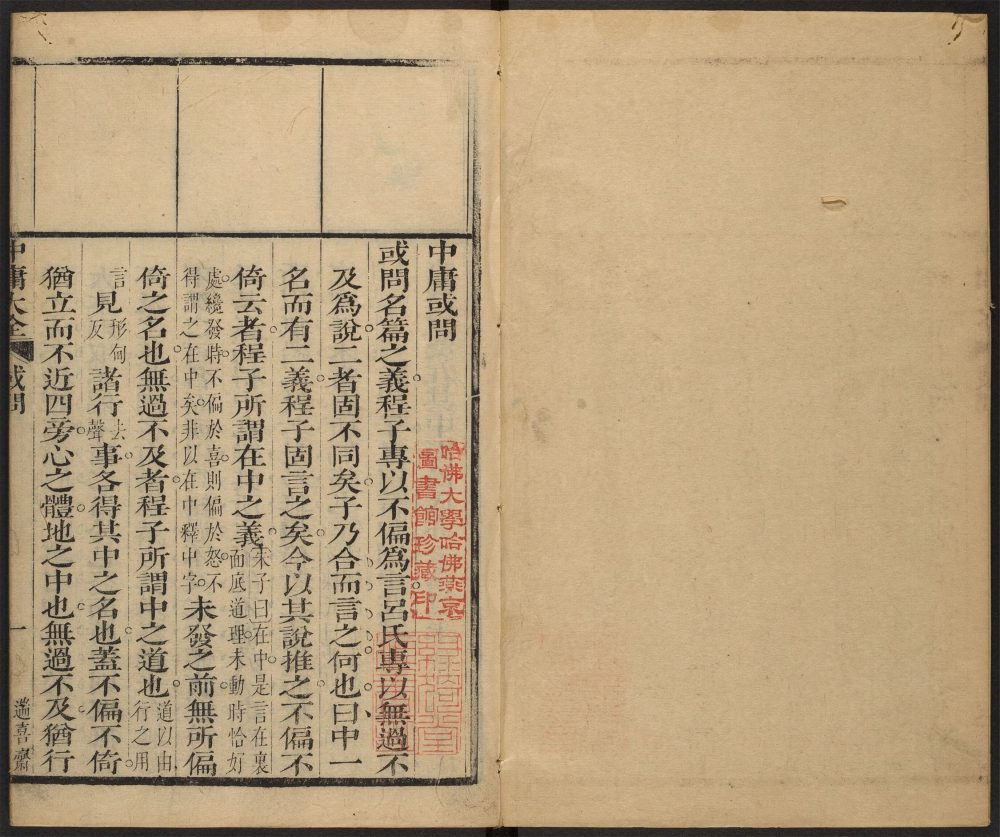 中庸或問
或問名篇之義程子專以不偏爲言呂氏專以無過不
及爲說二者固不同矣子乃合而言之何也曰中一
名而有二義程子固言之矣今以其說推之不偏不
倚云者程子所謂在中之義朱子曰在中是言在裏面底道理未動時恰好
處纔發時不偏於喜則偏於怒不得謂之在中矣非以在中釋中字未發之前無所偏
倚之名也無過不及者程子所謂中之道也道以由行之用
言見形甸反諸行去聲事各得其中之名也蓋不偏不倚
猶立而不近四旁心之體地之中也無過不及猶行
中庸大全 或問 一
哈佛大學哈佛燕京
圖書館珍藏印